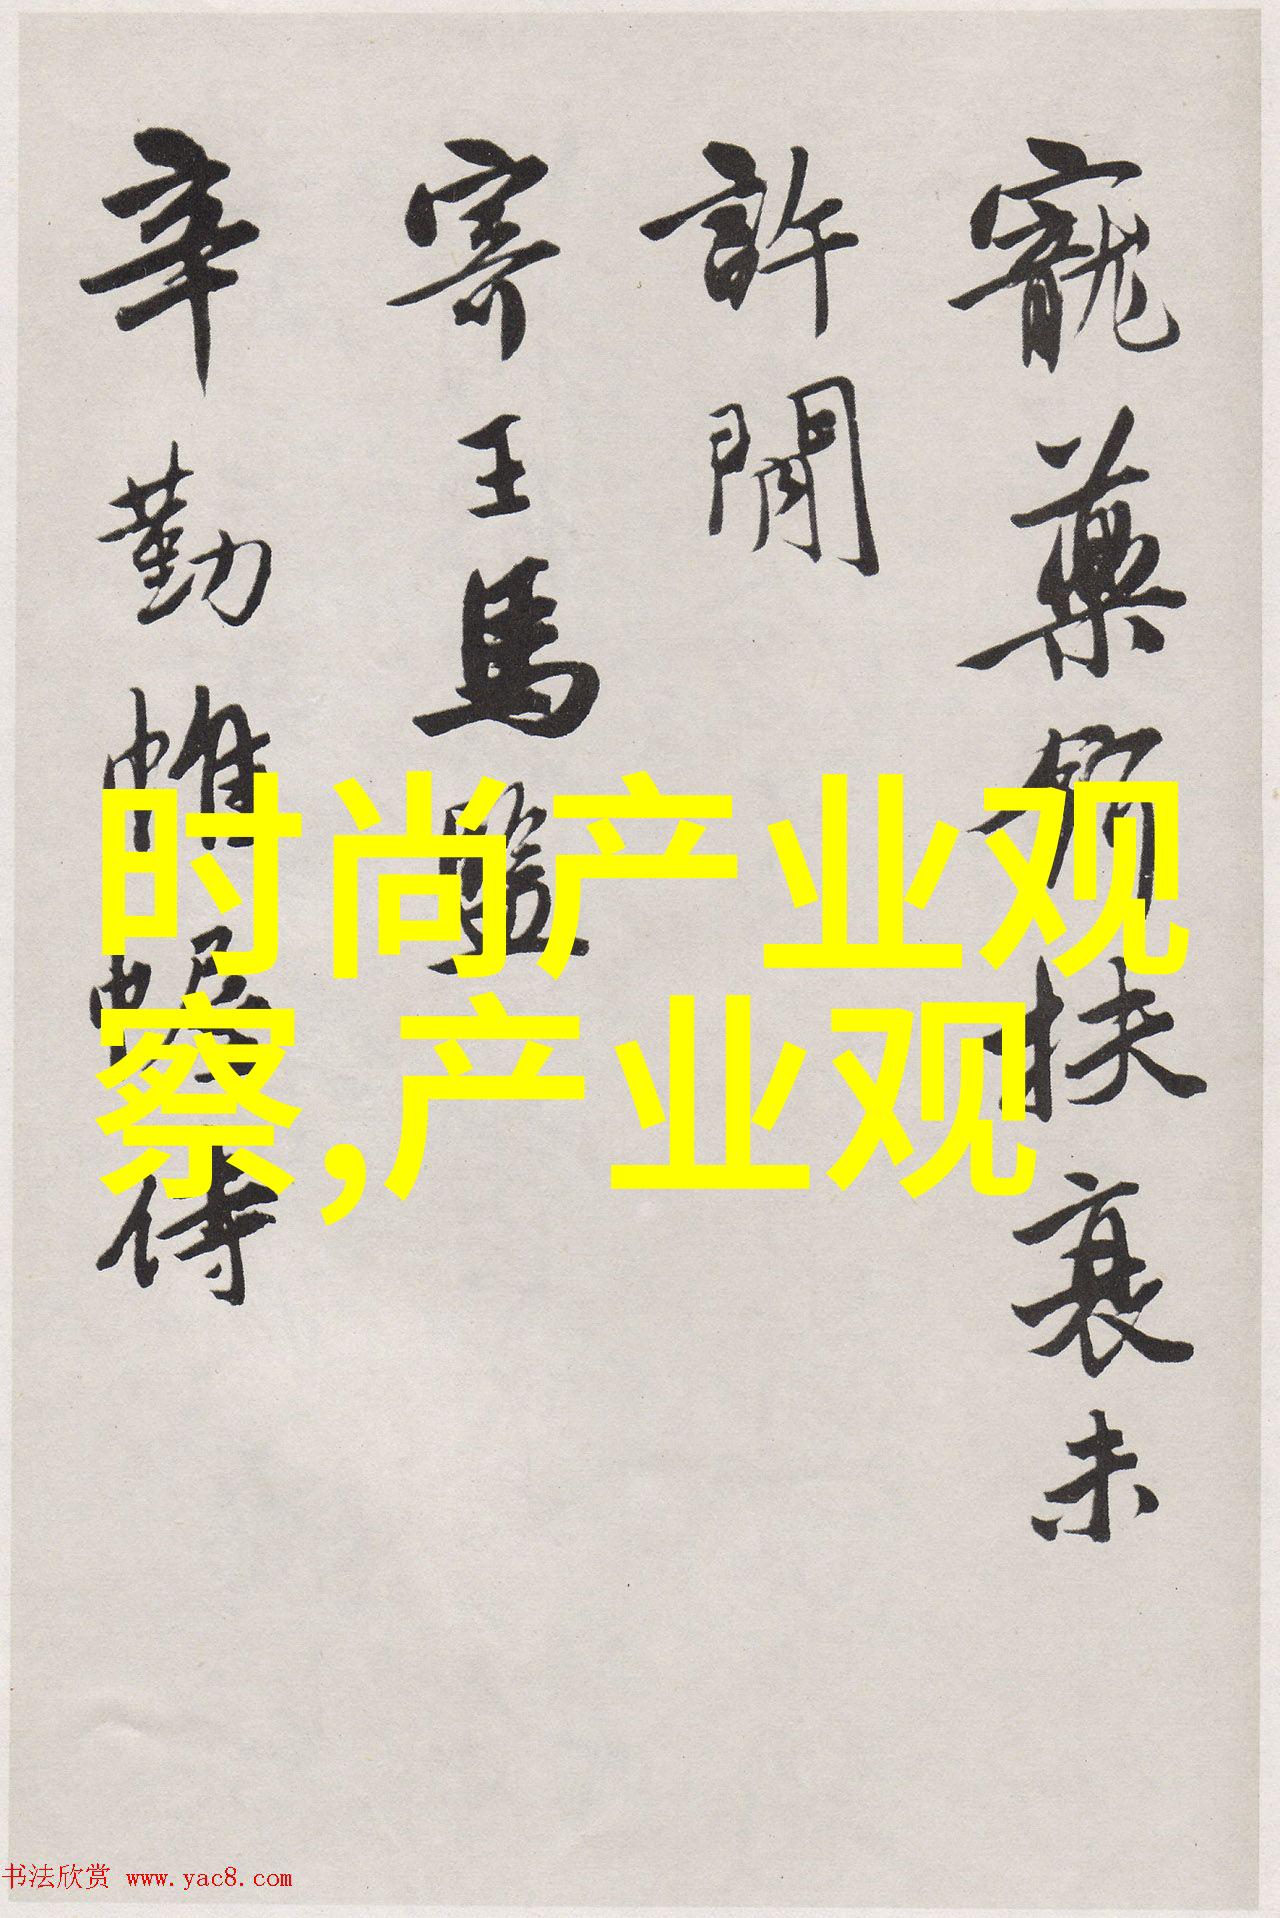 寵藥餌扶衰未
許閒
寄王馬監
辛勤帷幄侍
时尚产业观
察,产业观
书法欣赏 www.yac8.com